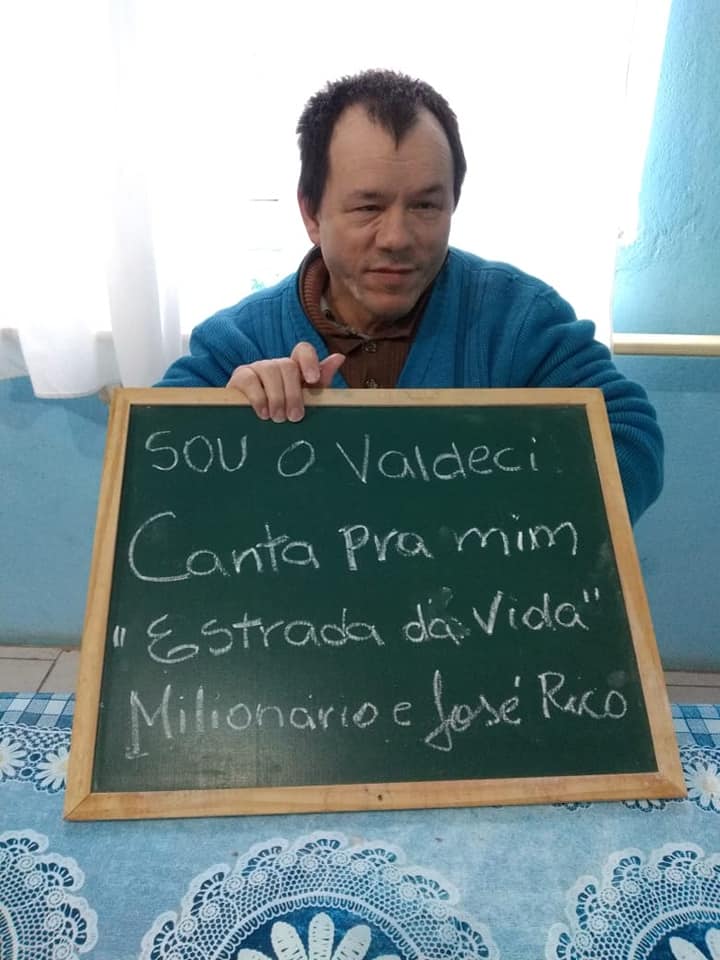 SOU O Valdeci
Canta pra mim
"Estrada da Vida"
Milionário e José Rico